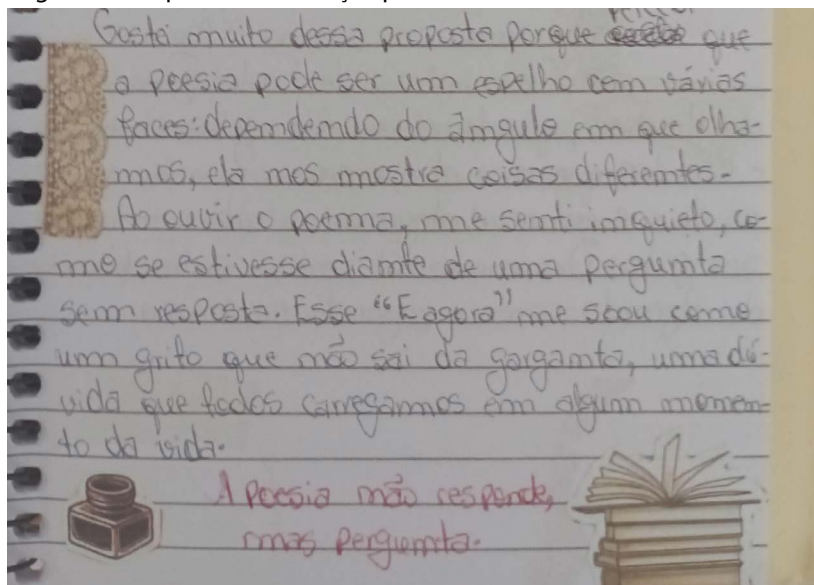 Gostei muito dessa proposta porque percebi que
a poesia pode ser um espelho com várias
faces: dependendo do ângulo em que olha-
mos, ela nos mostra coisas diferentes.
Ao ouvir o poema, me senti inquieto, co-
mo se estivesse diante de uma pergunta
sem resposta. Esse "E agora" me soou como
um grito que não sai da garganta, uma dú-
vida que todos carregamos em algum momen-
to da vida.
A poesia não responde,
mas pergunta.